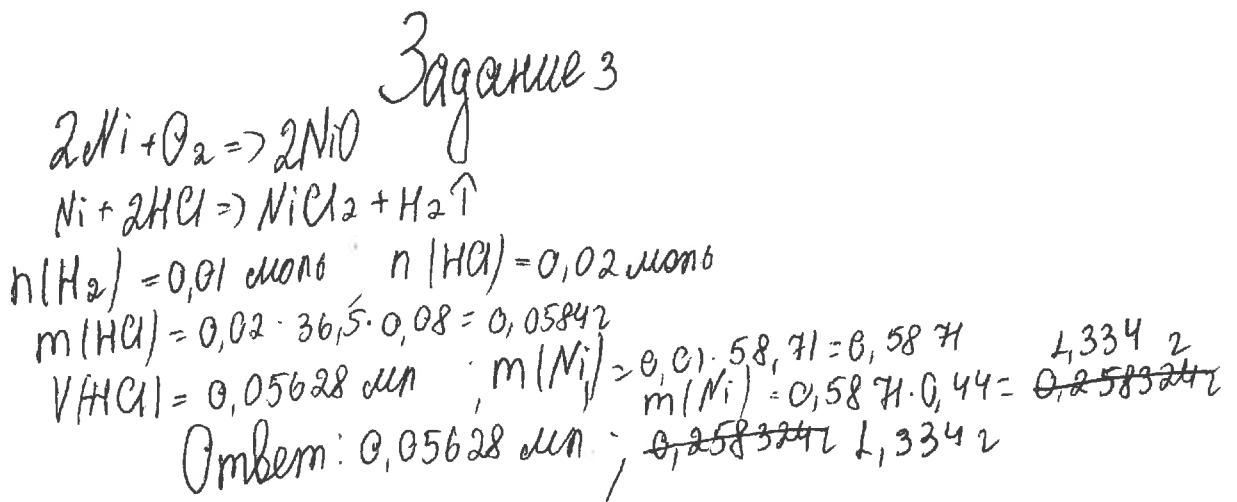 Задание 3
2Ni + O₂ => 2NiO
Ni + 2HCl => NiCl₂ + H₂↑
n(H₂) = 0,01 моль n(HCl) = 0,02 моль
m(HCl) = 0,02 · 36,5 · 0,08 = 0,0584г
V(HCl) = 0,05628 мл ; m(Ni) = 0,01 · 58,71 = 0,5871
m(Ni) = 0,5871 · 0,44 = 0,258324г 1,334 г
Ответ: 0,05628 мл ; 0,258324г 1,334 г